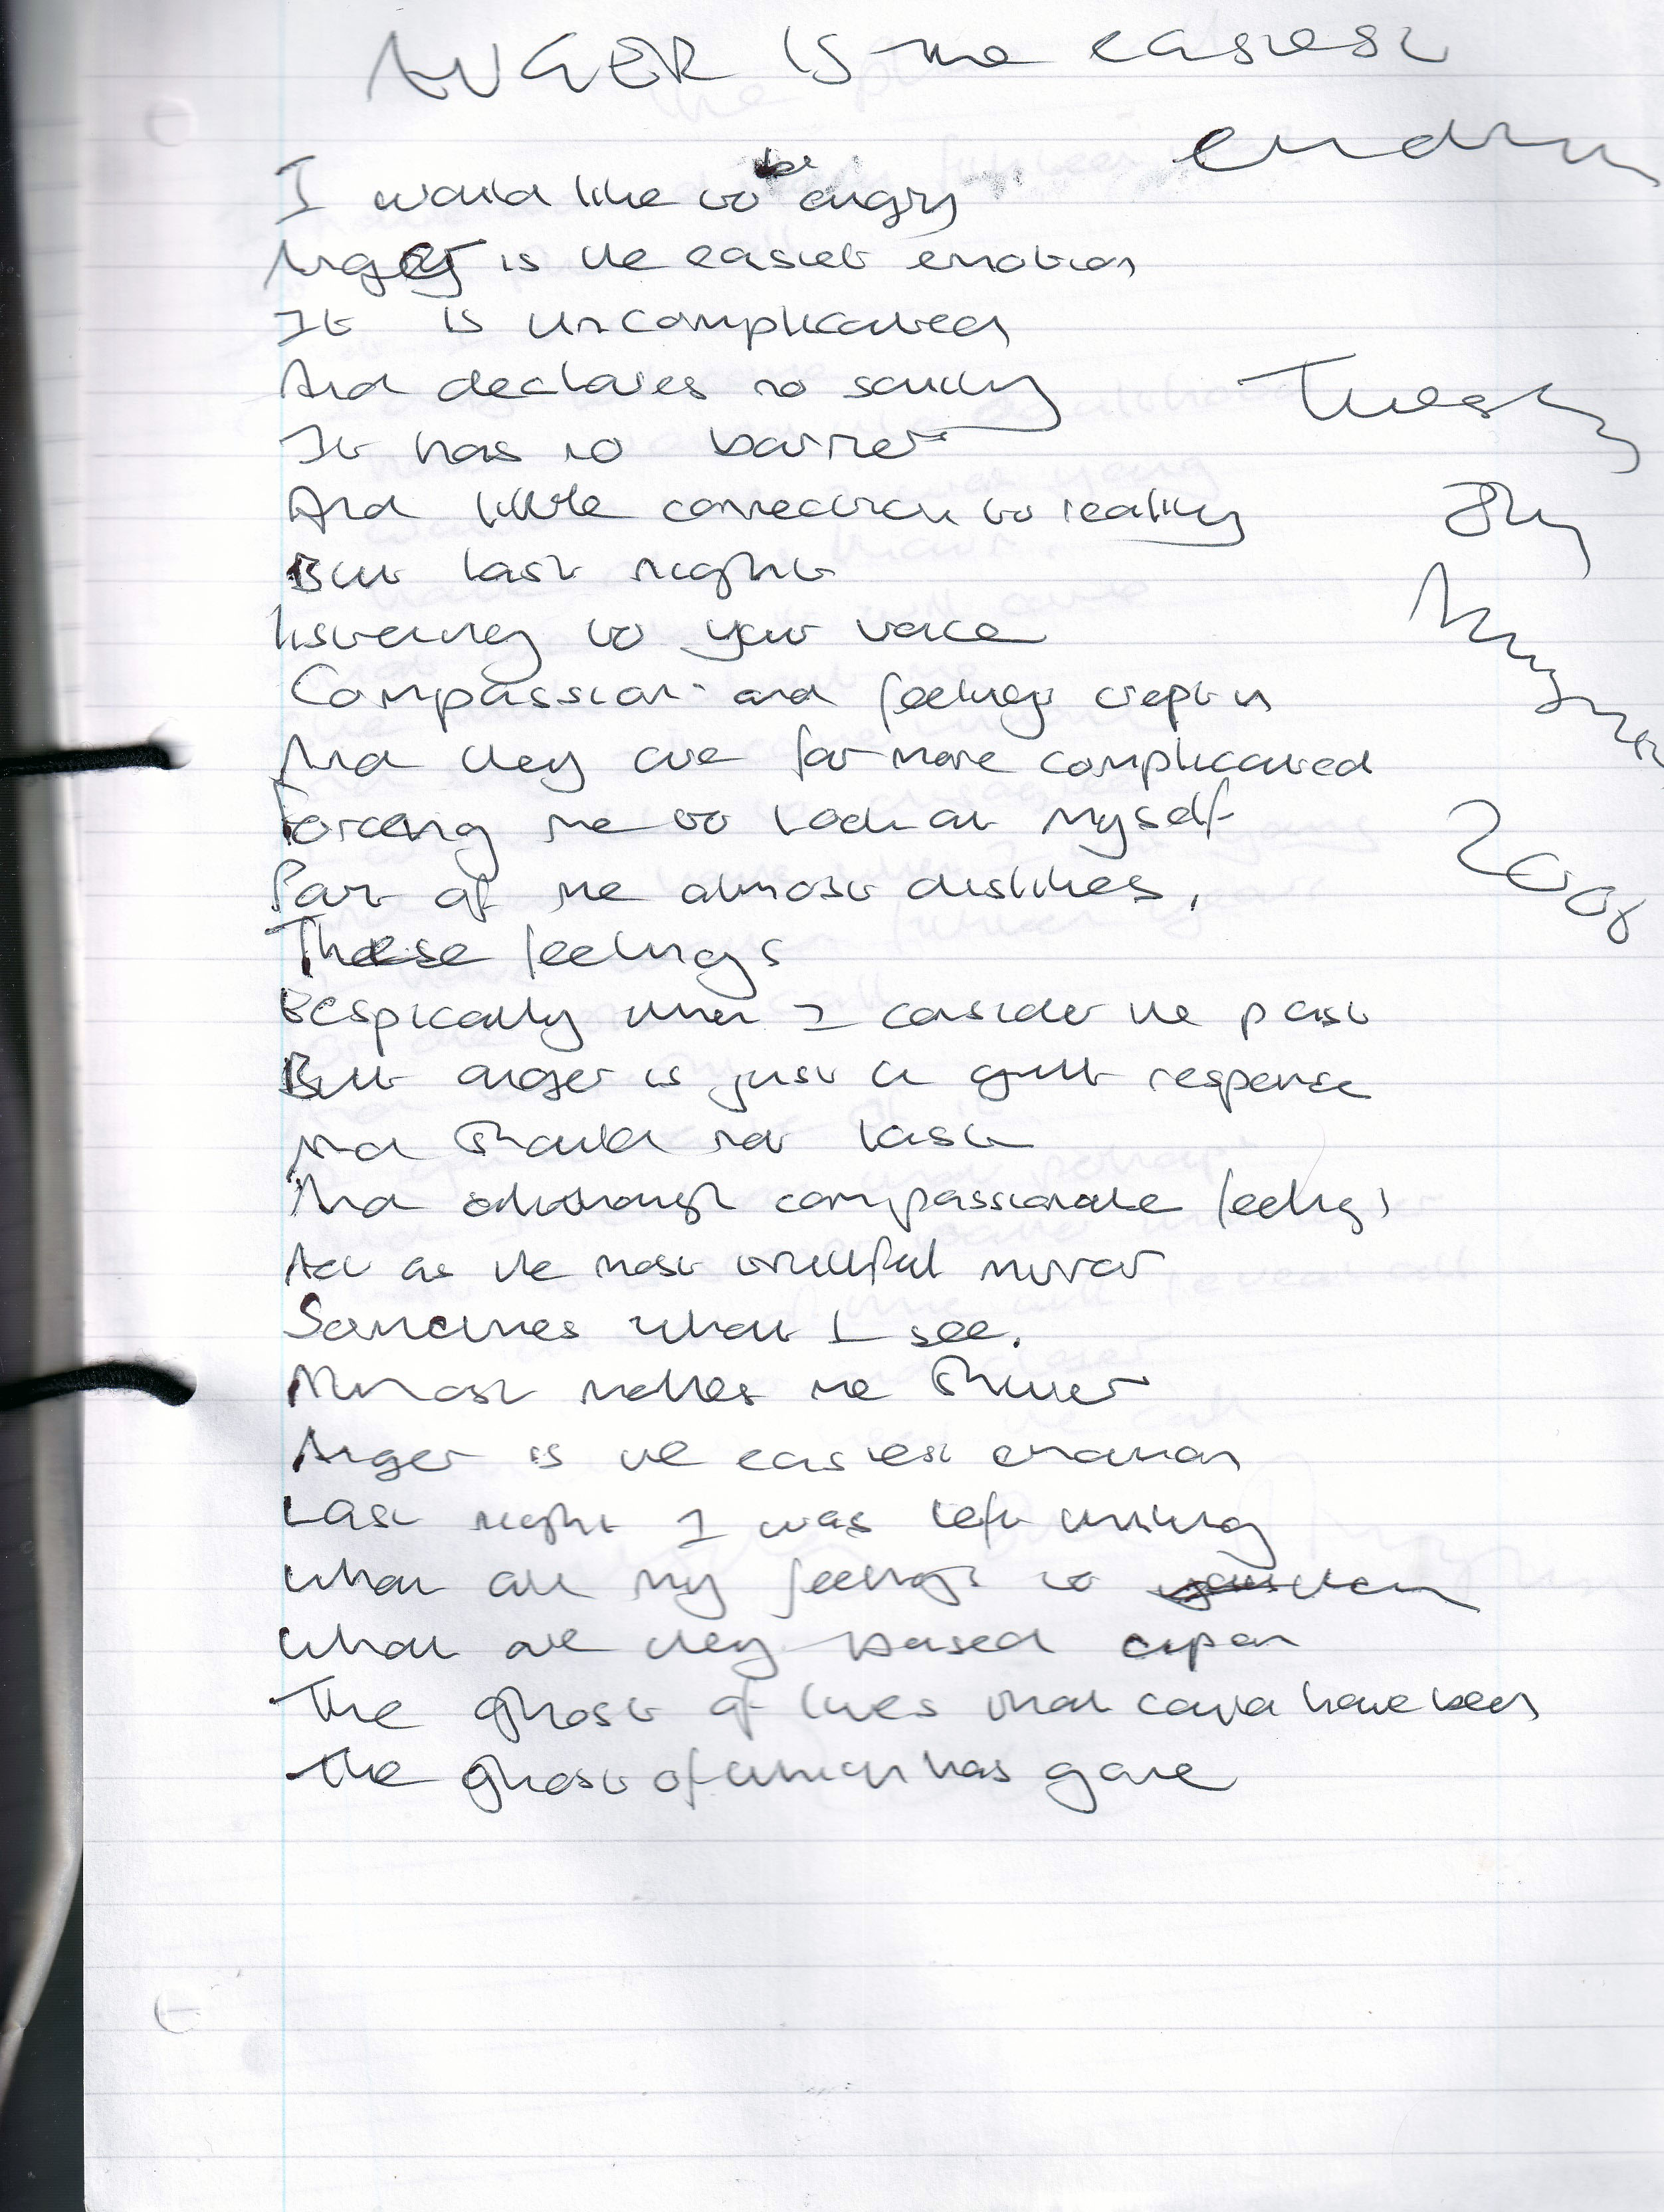 ANGER IS the easiest
I would like to be angry
Anger is the easiest emotion
It is uncomplicated
And declares no
It has no barrier
And little connection to reality
But last night
listening to your voice
Compassion and feelings crept in
And they are far more complicated
Forcing me to look at myself
Part of me almost dislikes,
These feelings
Bespically when I consider the past
But anger is just a gutt response
And should not last
And although compassionate feelings
Act as the most truthful mirror
Sometimes what I see.
Almost makes me shiver
Anger is the easiest emotion
Last night I was left
What are my feelings to
What are they based upon
The ghost of lives that could have been
The ghost of which has gone
Tuesday
8th
August